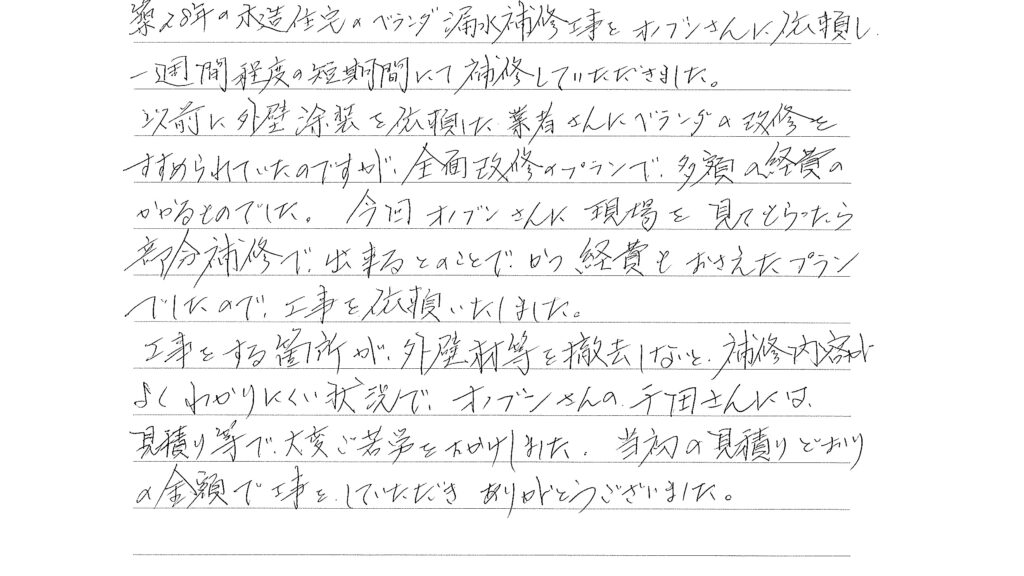 築28年の木造住宅のベランダ漏水補修工事をオノブンさんに依頼し、
一週間程度の短期間にて補修していただきました。
以前に外壁塗装を依頼した業者さんにベランダの改修を
すすめられていたのですが、全面改修のプランで、多額の経費の
かかるものでした。今回オノブンさんに現場を見てもらったら
部分補修で、出来るとのことで、かつ経費もおさえたプラン
でしたので、工事を依頼いたしました。
工事をする箇所が、外壁材等を撤去しないと、補修内容が
よくわかりにくい状況で、オノブンさんの千田さんには、
見積り等で、大変ご苦労をおかけしました。当初の見積りどおり
の金額で工事を、していただきありがとうございました。